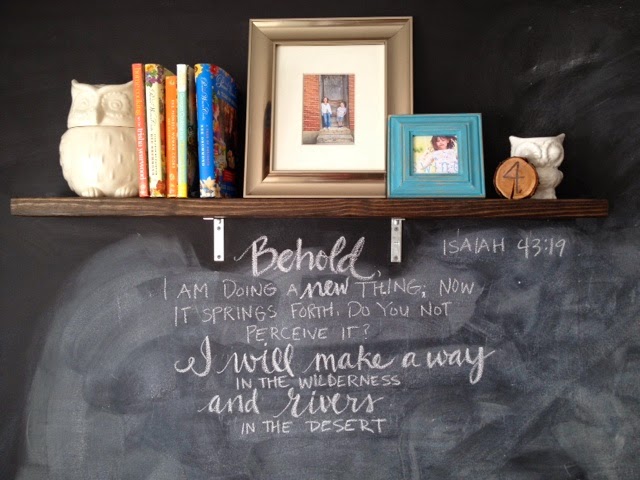 4
Behold,
ISAIAH 43:19
I AM DOING A new THING; NOW
IT SPRINGS FORTH. DO YOU NOT
PERCEIVE IT?
I will make a way
IN THE WILDERNESS
and rivers
IN THE DESERT